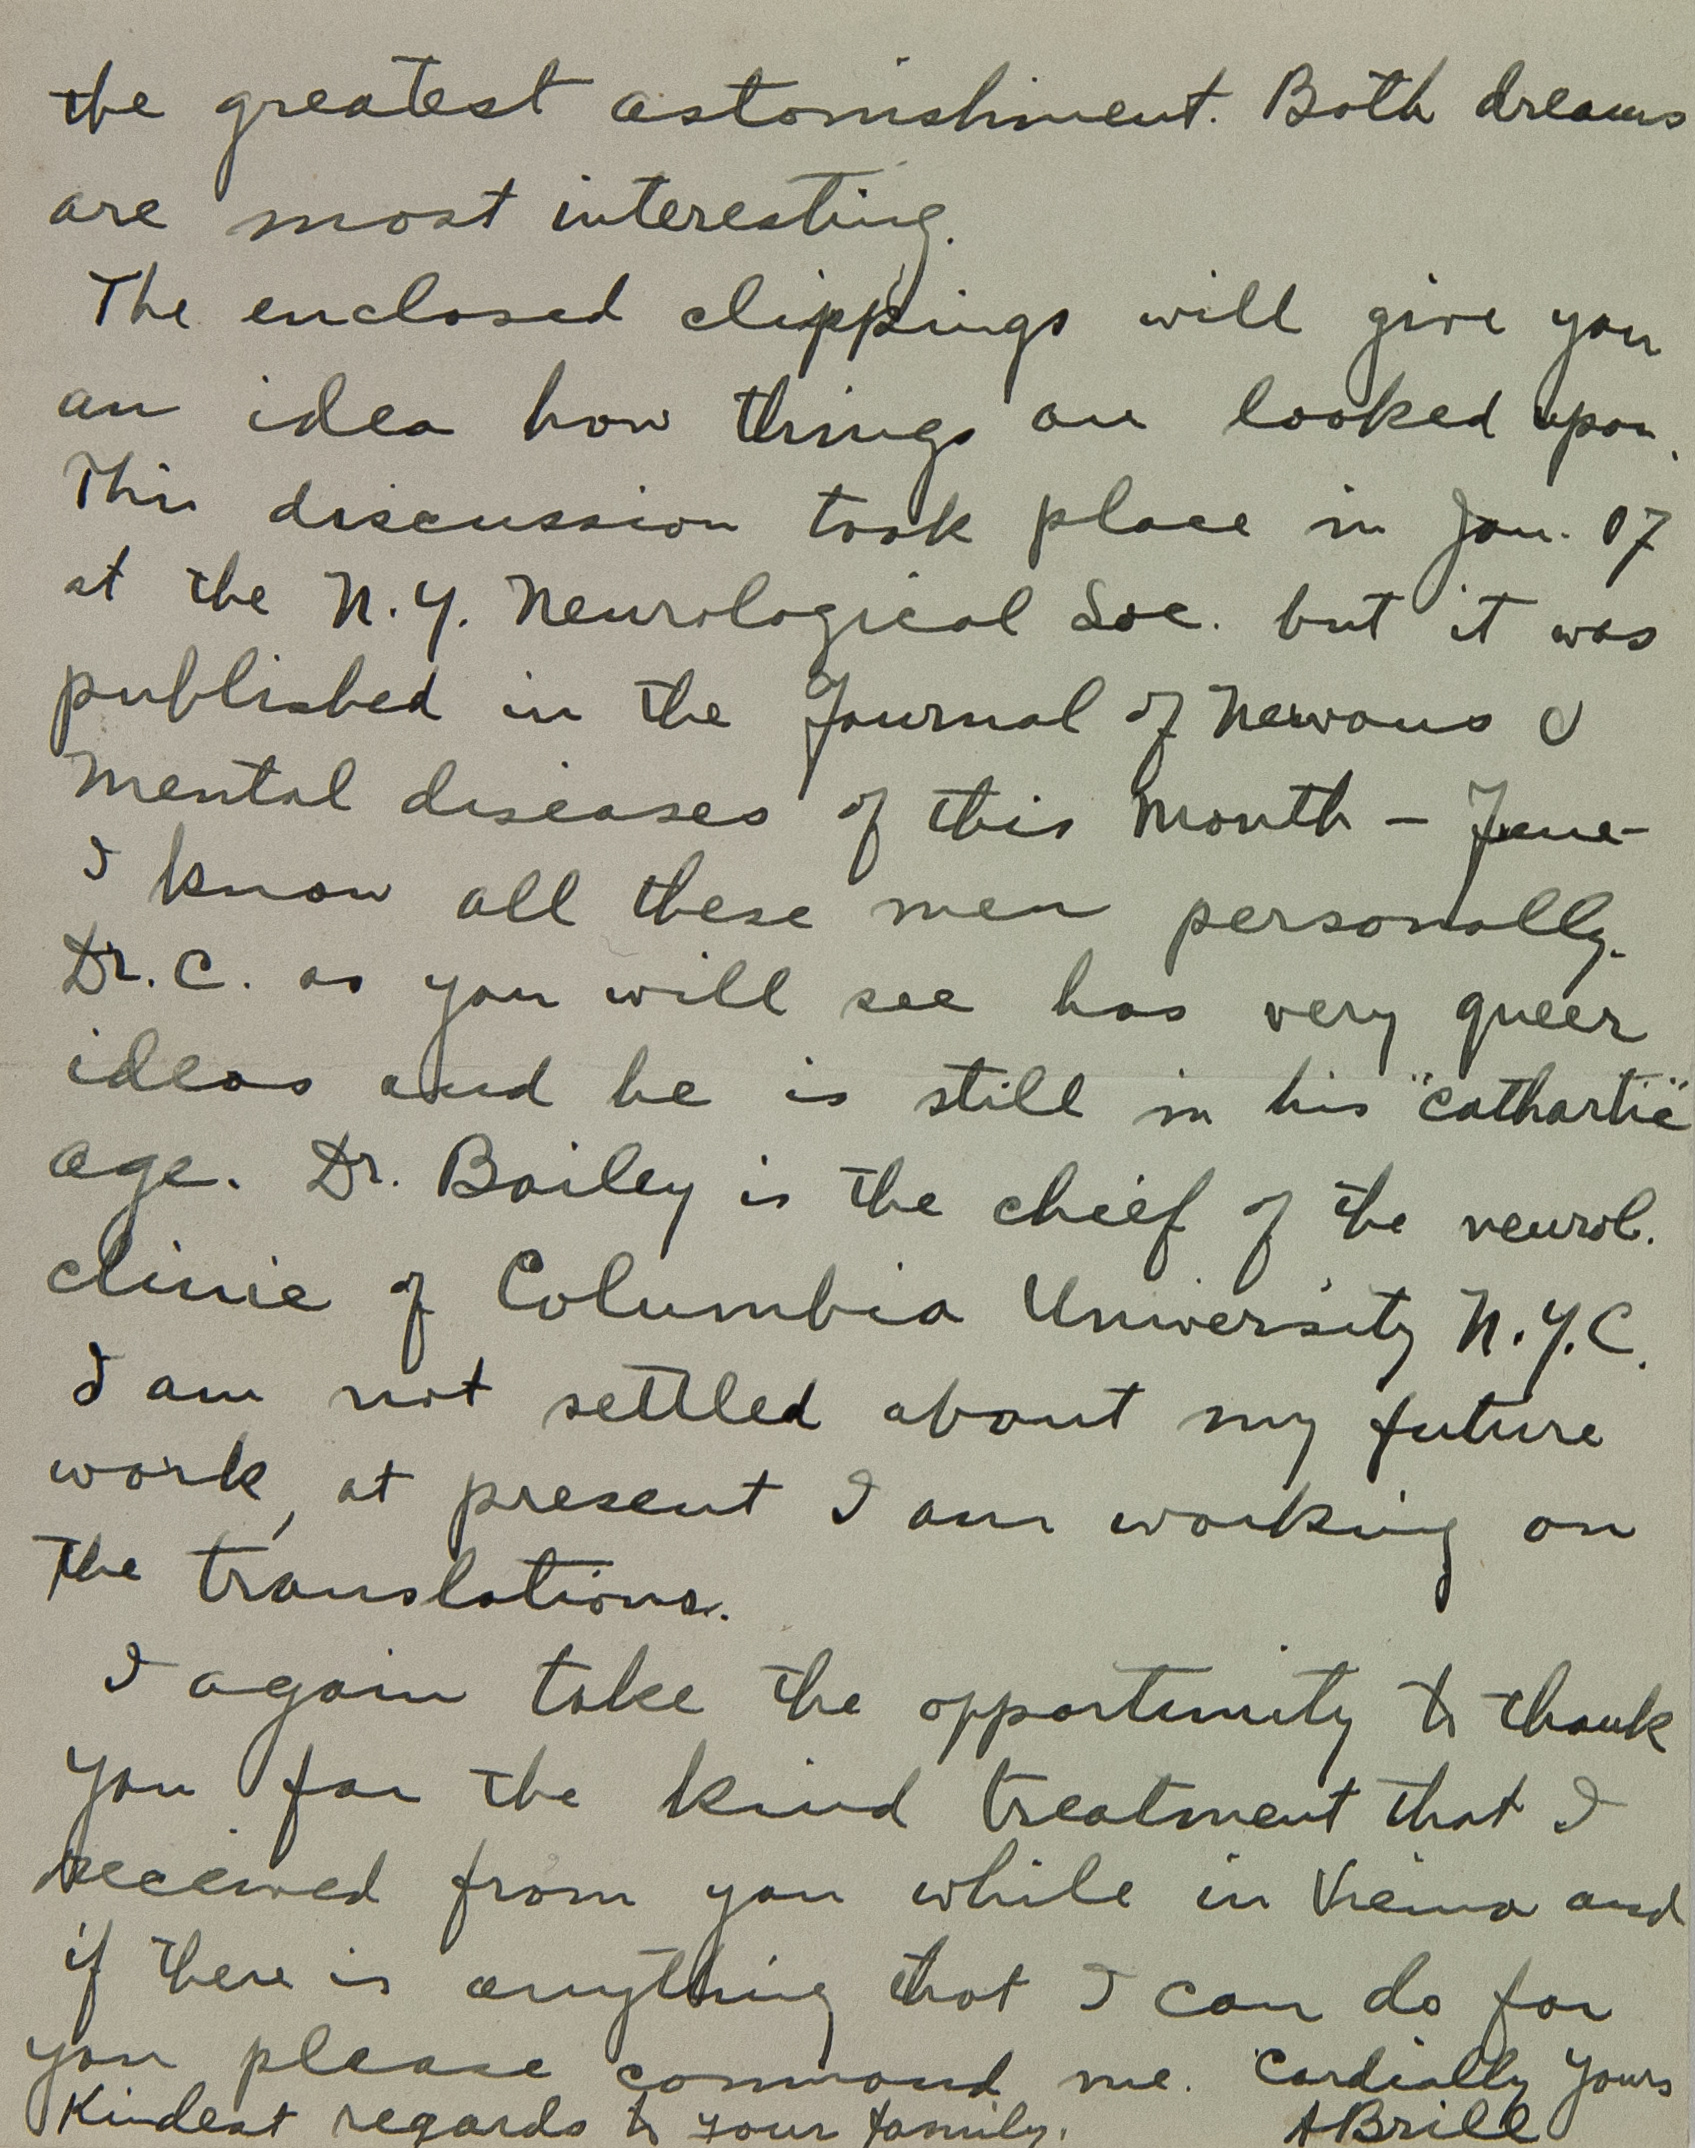 the greatest astonishment. Both dreams
are most interesting.
The enclosed clippings will give you
an idea how things are looked upon.
This discussion took place in Jan. 07
at the N.Y. Neurological Soc. but it was
published in the Journal of Nervous &
Mental diseases of this month – June –
I know all these men personally.
Dr. C. as you will see has very queer
ideas and he is still in his "cathartic"
age. Dr. Bailey is the chief of the neurol.
clinic of Columbia University N.Y.C.
I am not settled about my future
work, at present I am working on
the translations.
I again take the opportunity to thank
you for the kind treatment that I
received from you while in Vienna and
if there is anything that I can do for
you please command me. Cordially Yours
Kindest regards to your family. ABrill